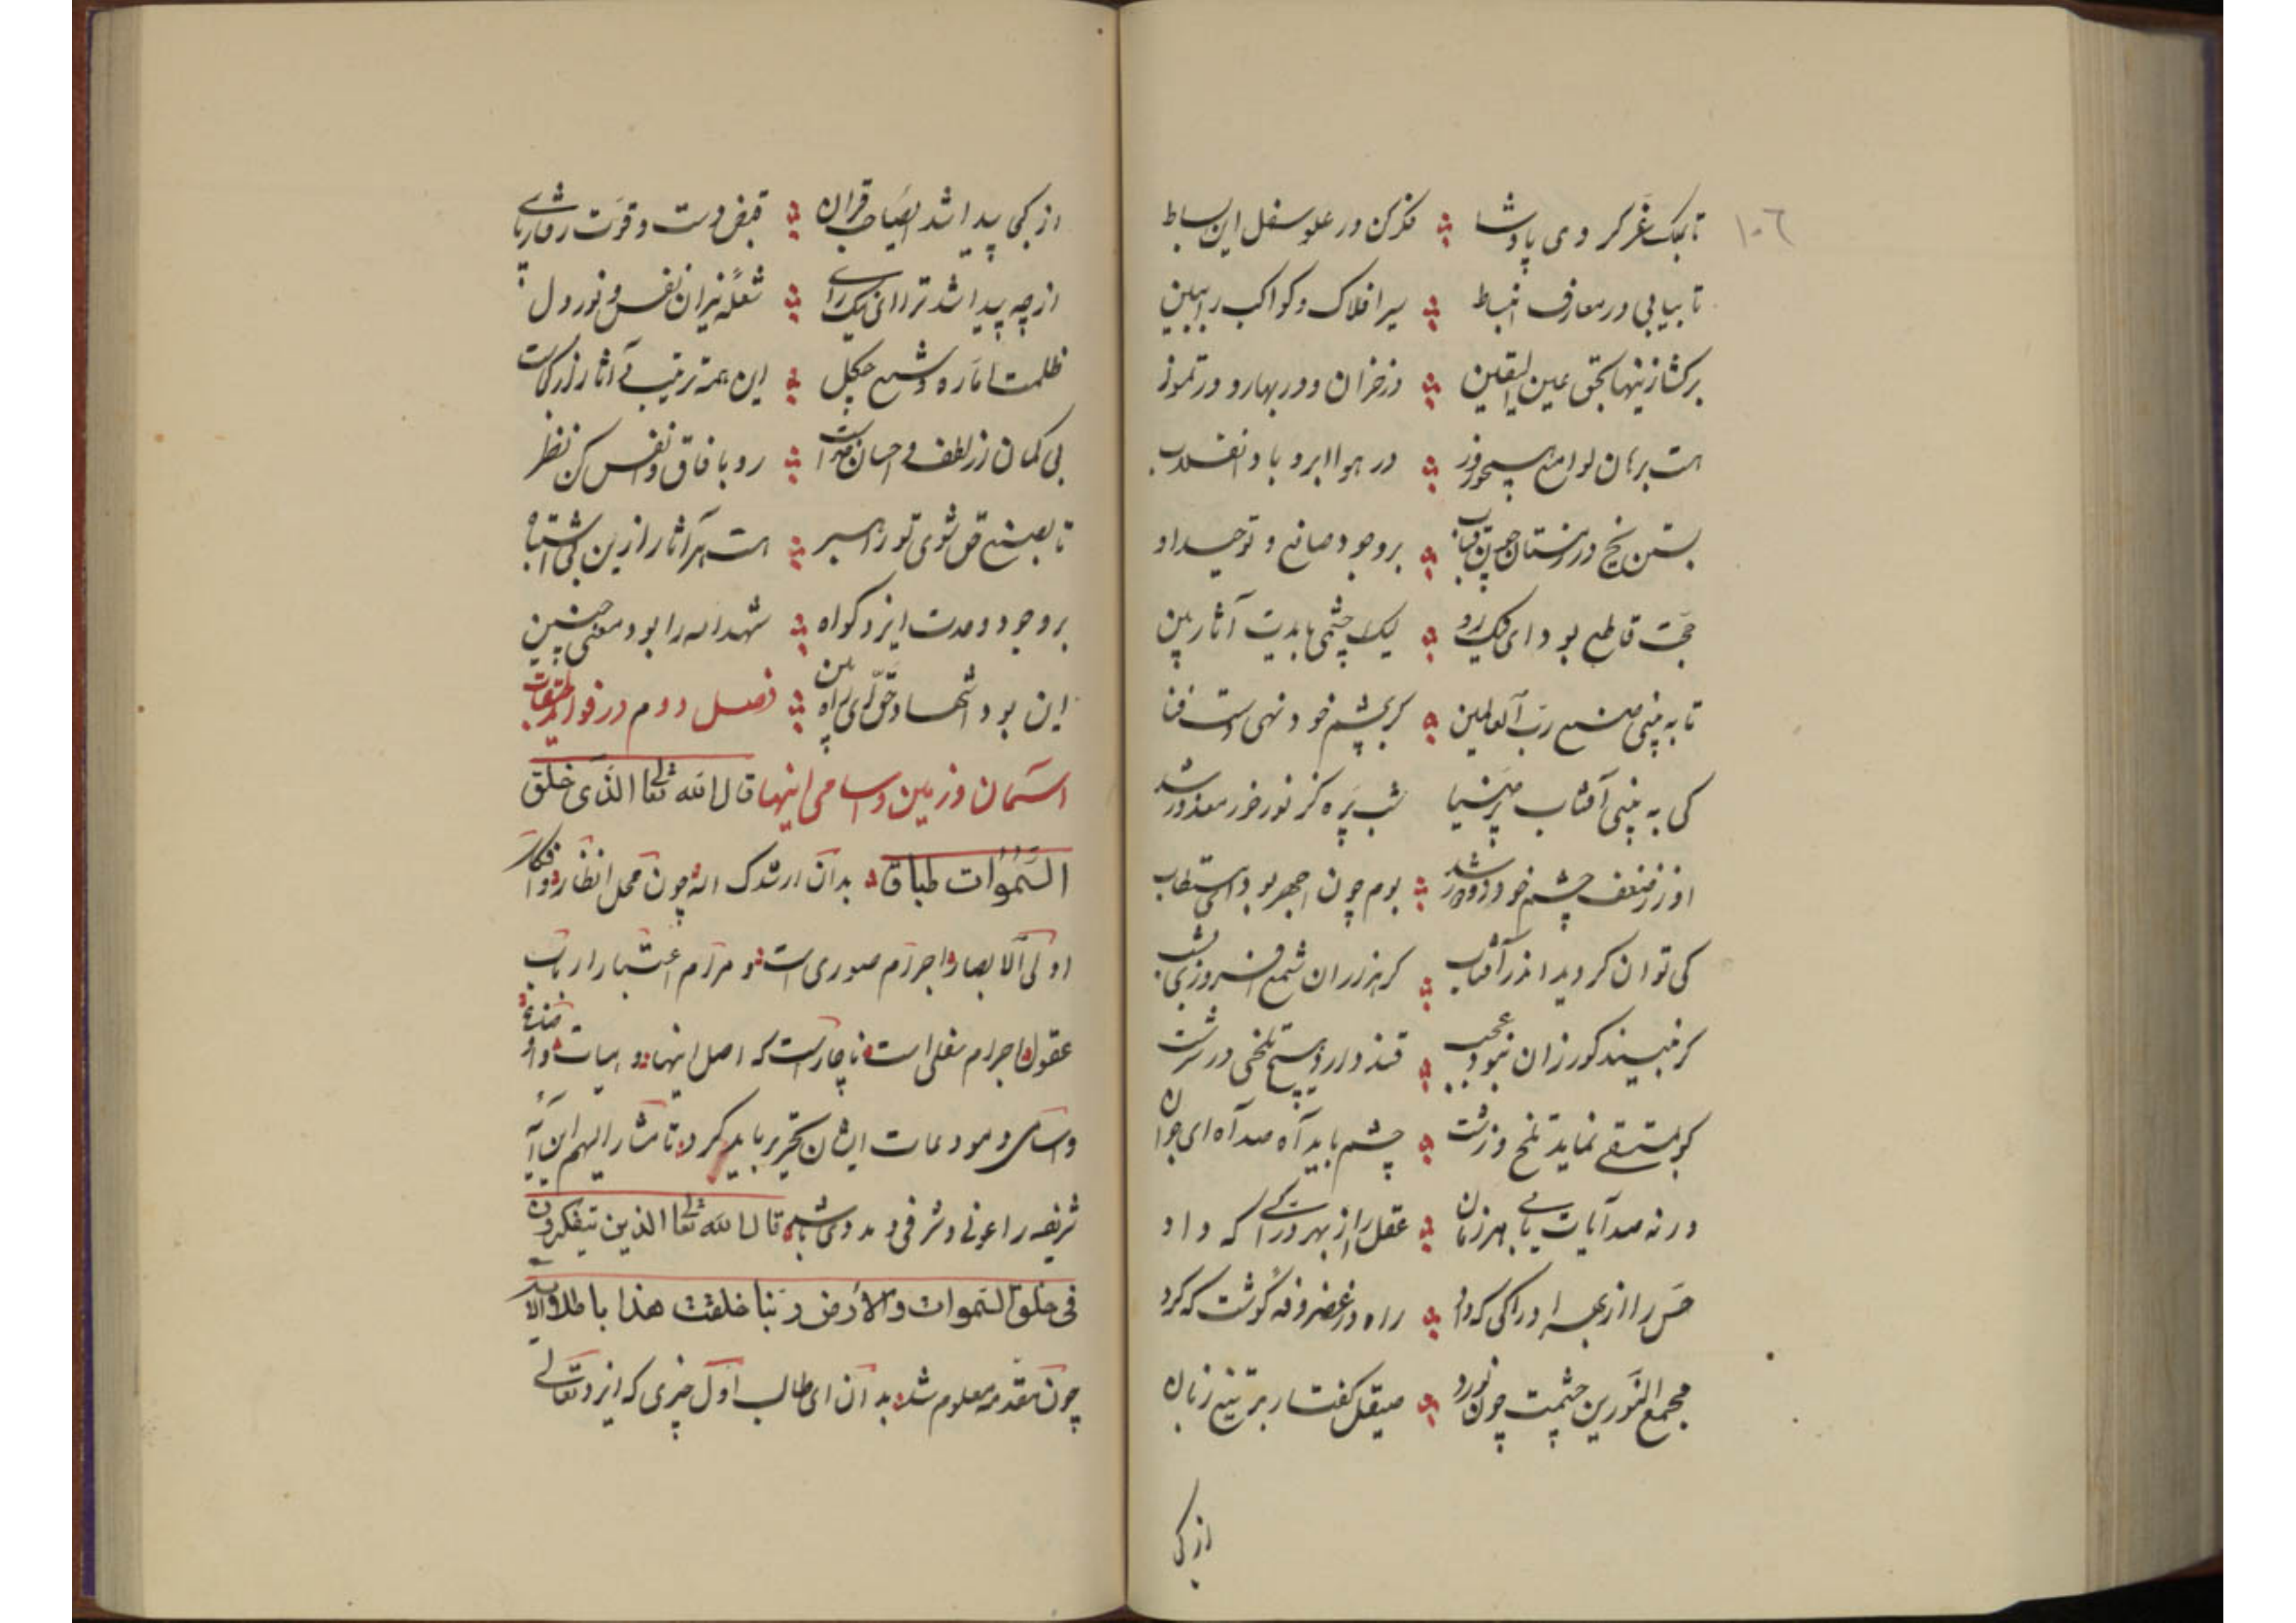 ١٠٦
تا بملک غر کردی پادشا فکر کن در علو سفل این بساط
تا بیابی در معارف انبساط سیر افلاک و کواکب را ببین
برکشا زینها بحق عین الیقین در خزان و در بهار و در تموز
هست برهان لوامع همچو روز در هوا ابر و باد انقلاب
بستن یخ در زمستان چون قباب بر وجود صانع و توحید او
حجت قاطع بود ای نیک رو لیک چشمی بایدت آثار بین
تا به بینی صنع رب العالمین کر بچشم خود نهی دست فنا
کی به بینی آفتاب پر ضیا شب پره کز نور خور معذور شد
او ز ضعف چشم خود زو دور شد بوم چون اجهر بود
کی توان کردید اندر آفتاب کر هزاران شمع افروزی بشب
کر نبیند کور زان نبود عجب قند دارد هیچ تلخی در سرشت
کو بمستسقی نماید تلخ و زشت چشم باید آه صد آه ای جوان
ور نه صد آیات یابی هر زمان عقل را از بهر ادراکی که داد
حس را از بهر ادراکی که داد راه در غضروفه گوشت که کرد
مجمع النورین چشمت چون نورد صیقل گفتار بر تیغ زبان
از کی
از کی پیدا شد ای صاحب قران قبض دست و قوت رفتار پای
از چه پیدا شد ترا ای نیک رای شعله نیران نفس و نور دل
ظلمت اماره و شمع چکل این همه ترتیب آثار
بی کمان از لطف و احسان خداست رو بافاق و نفس کن نظر
تا بصنع حق شوی تو راهبر هست هر آثار ازین بی اشتباه
بر وجود وحدت ایزد گواه شهد الله را بود معنی چنین
این بود اشهاد حق ای راه بین فصل دوم در فواید
آسمان و زمین و اسامی اینها قال الله تعالی الذی خلق
السموات طباقا بدان ارشدک الله چون محل انظار و افکار
اولی الابصار اجرام صوری است و مرام اعتبار ارباب
عقول اجرام سفلی است ناچارست که اصل اینها و هیات و اوضاع
و اسامی و مودعات ایشان تحریر باید کرد تا مشار الیهم این آیه
شریفه را عونی و شرفی و مددی باشد قال الله تعالی الذین یتفکرون
فی خلق السموات والارض ربنا ما خلقت هذا باطلا
چون مقدمه معلوم شد بدان ای طالب اول چیزی که ایزد تعالی